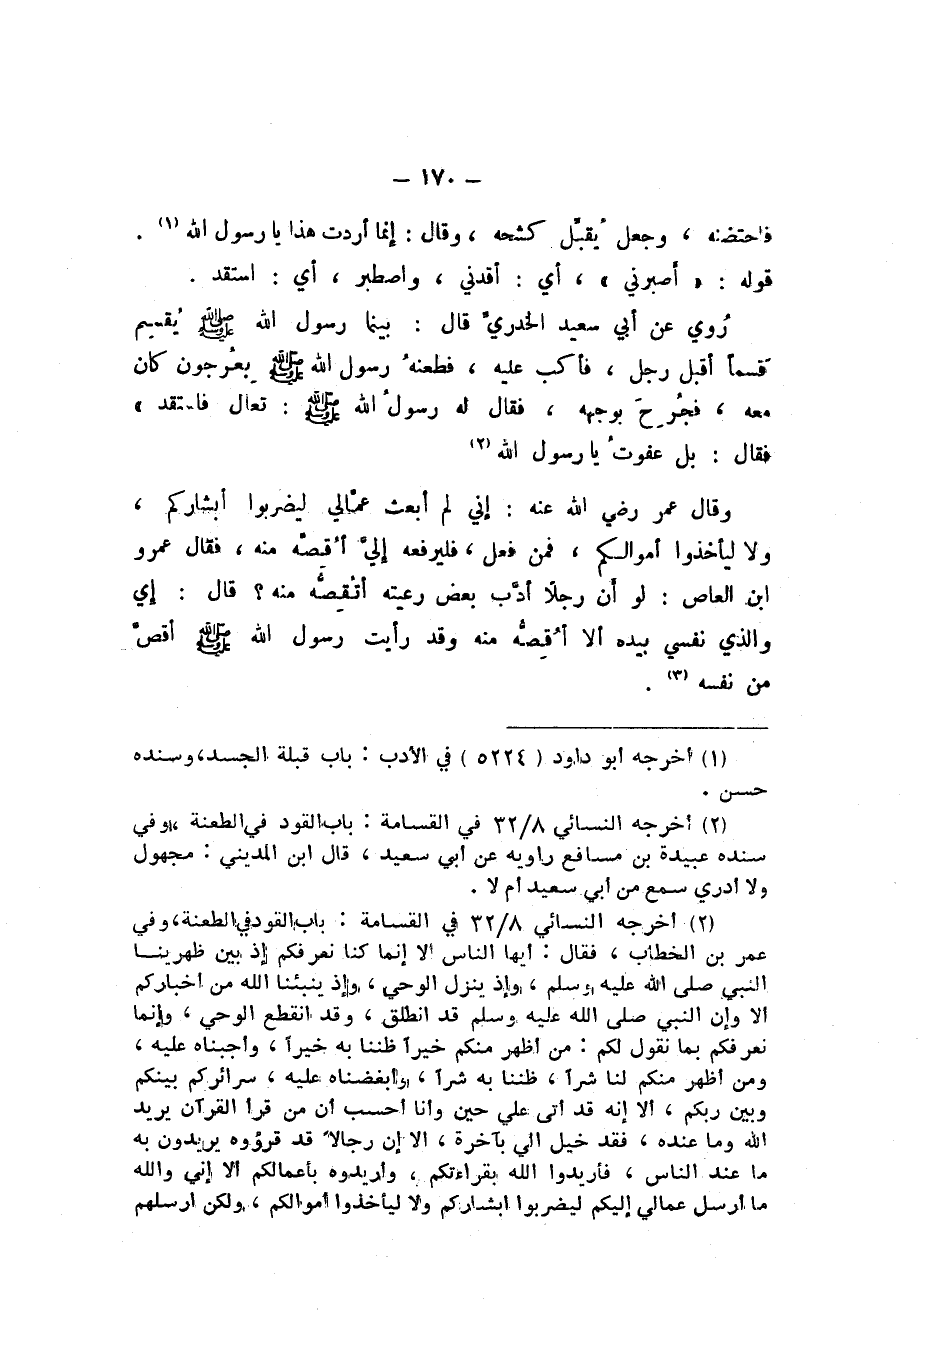 — ١٧٠ —
فاحتضنه ، وجعل يُقبِّل كشحه ، وقال : إنما أردت هذا يا رسول الله (١) .
قوله : « أصبرني » ، أي : أقدني ، واصطبر ، أي : استقد .
رُوي عن أبي سعيد الخدريِّ قال : بينما رسول الله ﷺ يُقسِم
قَسماً أقبل رجل ، فأكب عليه ، فطعنهُ رسول الله ﷺ بِعُرجون كان
معه ، فجُرِحَ بوجهه ، فقال له رسولُ الله ﷺ : تعال فاستقد »
فقال : بل عفوتُ يا رسول الله (٢)
وقال عمر رضي الله عنه : إني لم أبعث عمَّالي ليضربوا أبشاركم ،
ولا ليأخذوا أموالكم ، فمن فعل ، فليرفعه إليَّ أُقِصّه منه ، فقال عمرو
ابن العاص : لو أن رجلًا أدَّب بعض رعيته أتُقِصُّه منه ؟ قال : إي
والذي نفسي بيده ألا أُقِصُّه منه وقد رأيت رسول الله ﷺ أقصَّ
من نفسه (٣) .
(١) أخرجه أبو داود ( ٥٢٢٤ ) في الأدب : باب قبلة الجسد، وسنده
حسن .
(٢) أخرجه النسائي ٣٢/٨ في القسامة : باب القود في الطعنة ، وفي
سنده عبيدة بن مسافع راويه عن أبي سعيد ، قال ابن المديني : مجهول
ولا أدري سمع من أبي سعيد أم لا .
(٢) أخرجه النسائي ٣٢/٨ في القسامة : باب القود في الطعنة، وفي
عمر بن الخطاب ، فقال : أيها الناس ألا إنما كنا نعرفكم إذ بين ظهرينا
النبي صلى الله عليه وسلم ، وإذ ينزل الوحي ، وإذ ينبئنا الله من أخباركم
ألا وإن النبي صلى الله عليه وسلم قد انطلق ، وقد انقطع الوحي ، وإنما
نعرفكم بما نقول لكم : من أظهر منكم خيراً ظننا به خيراً ، وأجبناه عليه ،
ومن أظهر منكم لنا شراً ، ظننا به شراً ، وأبغضناه عليه ، سرائركم بينكم
وبين ربكم ، ألا إنه قد أتى علي حين وأنا أحسب أن من قرأ القرآن يريد
الله وما عنده ، فقد خيل الي بآخرة ، ألا إن رجالاً قد قرؤوه يريدون به
ما عند الناس ، فأريدوا الله بقراءتكم ، وأريدوه بأعمالكم ألا إني والله
ما أرسل عمالي إليكم ليضربوا ابشاركم ولا ليأخذوا أموالكم ، ولكن أرسلهم